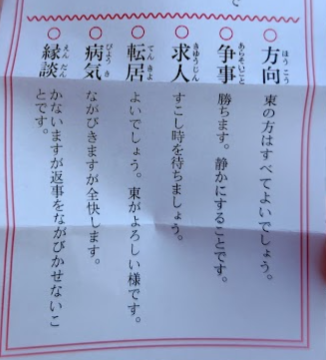 で
方向 東の方はすべてよいでしょう。
ほう こう
争事 勝ちます。静かにすることです。
あらそいごと
求人 すこし時を待ちましょう。
きゅうじん
転居 よいでしょう。東がよろしい様です。
てん きょ
病気 ながびきますが全快します。
びょう き
縁談 かないますが返事をながびかせないこ
えん だん
とです。